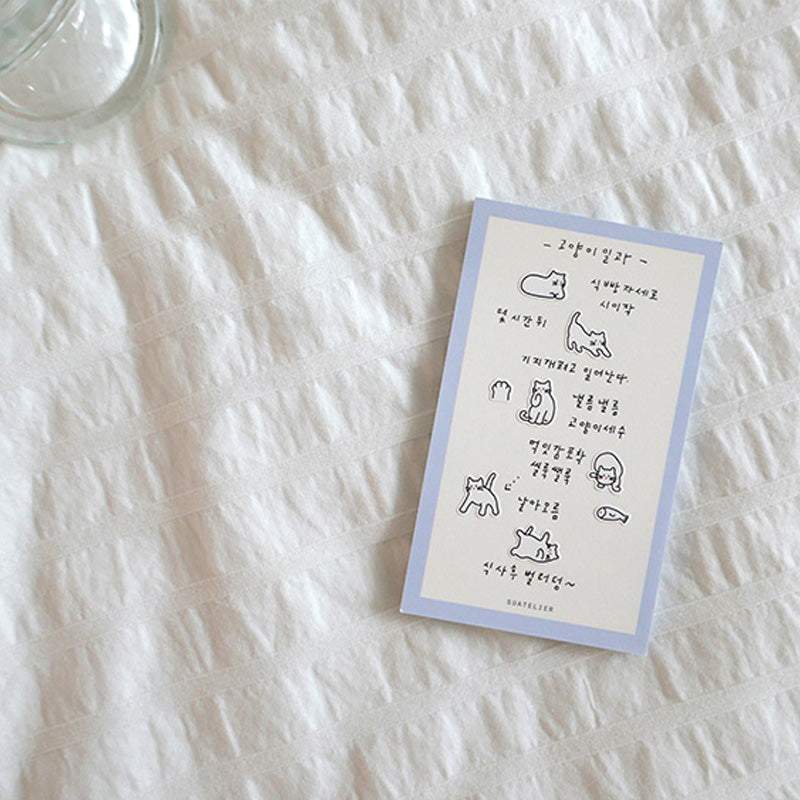 - 고양이 일과 -
식빵 자세로
시이작
몇 시간 뒤
기지개 펴고 일어난다.
낼름낼름
고양이세수
먹잇감포착
씰룩쌜룩
날아오름
식사후 벌러덩~
SUATELIER